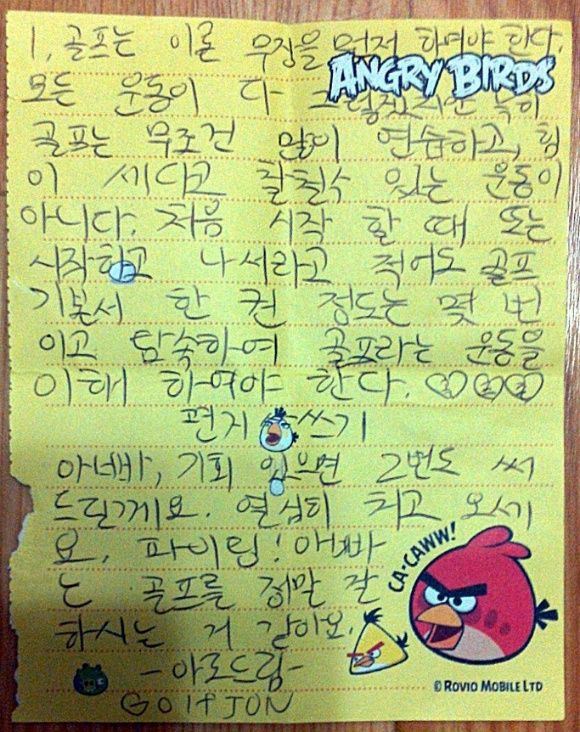 1, 골프는 이론 무장을 먼저 하여야 한다.
ANGRY BIRDS
모든 운동이 다 그렇겠지만 특히
골프는 무조건 많이 연습하고, 힘
이 세다고 잘칠수 있는 운동이
아니다. 처음 시작 할 때 또는
시작하고 나서라고 적어도 골프
기본서 한 권 정도는 몇 번
이고 탐숙하여 골프라는 운동을
이해 하여야 한다. ♡♡♡♡
편지 쓰기
아네빠, 기회 있으면 2번도 써
드릴게요. 열심히 치고 오세
요. 파이팅! 아빠
는 골프를 정말 잘
하시는 거 같아요.
CA-CAWW!
-아로드림-
GOlf JON
© ROVIO MOBILE LTD